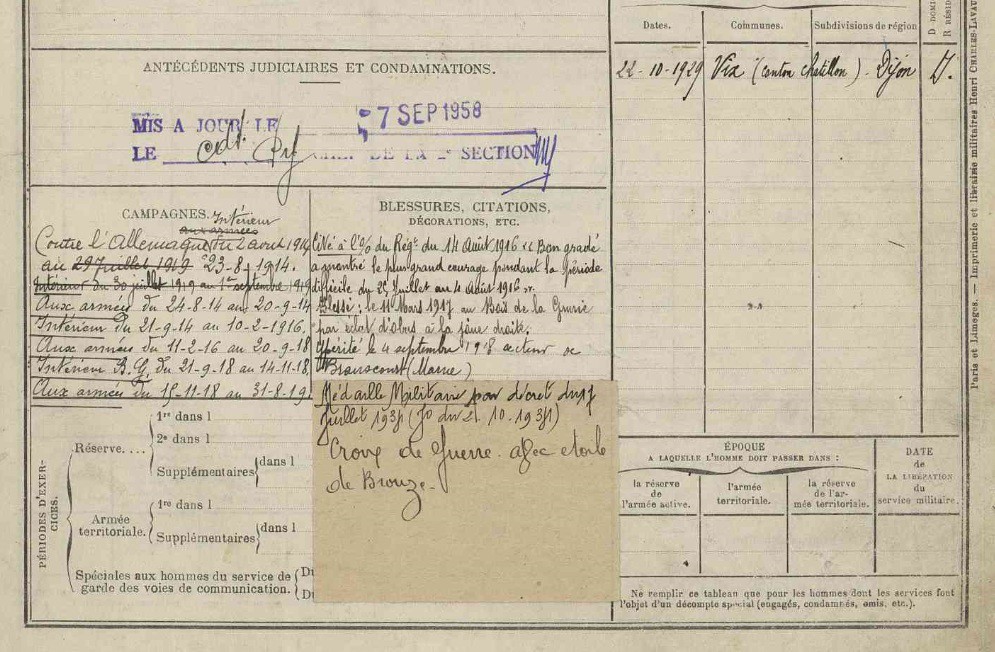 Dates.
Communes.
Subdivisions de région
D. DOMI
R RÉSID
22-10-1929 Vix (canton chatillon) - Dijon D.
ANTÉCÉDENTS JUDICIAIRES ET CONDAMNATIONS.
MIS A JOUR LE 7 SEP 1958
LE DE LA SECTION
CAMPAGNES. Intérieur
aux armées
Contre l'Allemagne du 2 août 1914
au 29 juillet 1919 23-8-1914.
Intérieur du 30 juillet 1919 au 1er septembre 1919
Aux armées du 24-8-14 au 20-9-14
Intérieur du 21-9-14 au 10-2-1916.
Aux armées du 11-2-16 au 20-9-18
Intérieur B.G. du 21-9-18 au 14-11-18
Aux armées du 15-11-18 au 31-8-19
BLESSURES, CITATIONS,
DÉCORATIONS, ETC.
Cité à l'o/ du Régt du 14 Août 1916 "Bon gradé
a montré le plus grand courage pendant la période
difficile du 25 Juillet au 4 Août 1916".
Blessé: le 11 Mars 1917 au Bois de la Gruerie
par éclat d'obus à la jambe droite.
le 4 septembre 1918 secteur de
(Marne)
Médaille Militaire par décret du 17
Juillet 1934 (JO du 21.10.1934)
Croix de Guerre avec etoile
de Bronze.
PÉRIODES D'EXER-
CICES.
Réserve....
1re dans l
2e dans l
Supplémentaires dans l
Armée
territoriale.
1re dans l
Supplémentaires dans l
Spéciales aux hommes du service de
garde des voies de communication.
Du
Du
ÉPOQUE
A LAQUELLE L'HOMME DOIT PASSER DANS :
la réserve
de
l'armée active.
l'armée
territoriale.
la réserve
de l'ar-
mée territoriale.
DATE
de
LA LIBÉRATION
du
service militaire.
Ne remplir ce tableau que pour les hommes dont les services font
l'objet d'un décompte spécial (engagés, condamnés, omis, etc.).
Paris et Limoges. — Imprimerie et librairie militaires Henri CHARLES-LAVAU